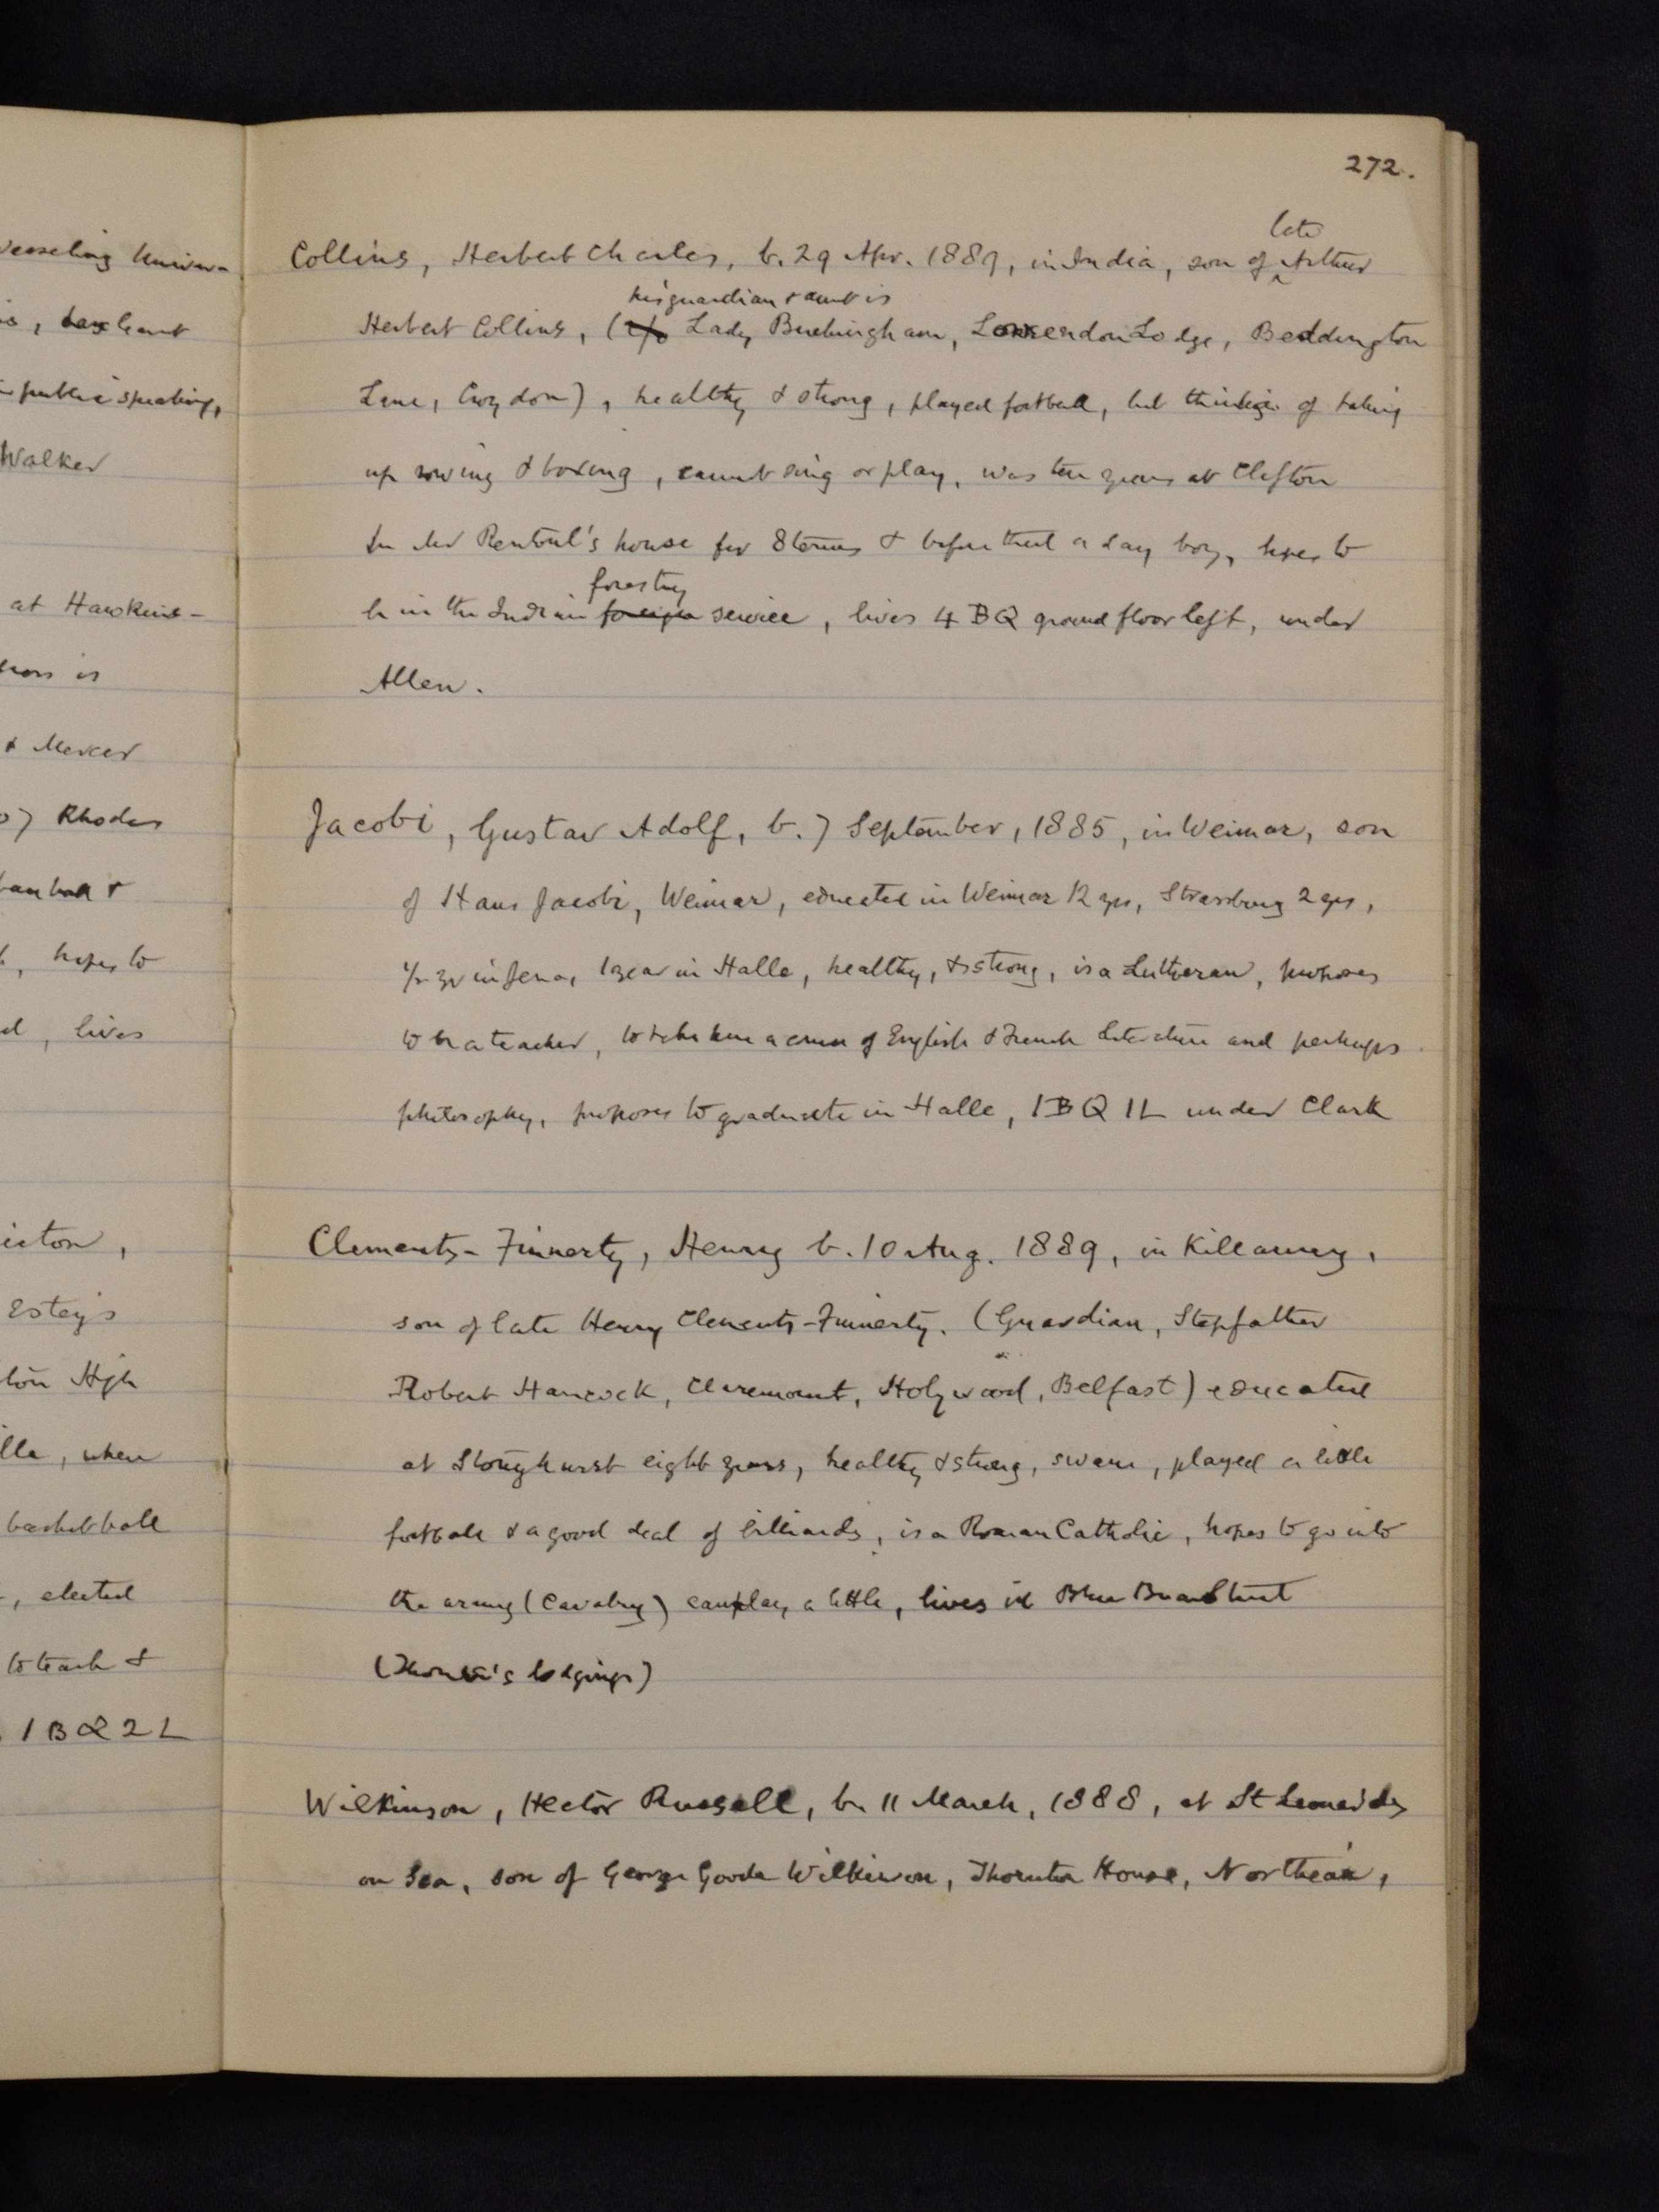 272.
Collins, Herbert Charles, b. 29 Apr. 1889, in India, son of late Arthur
Herbert Collins, (c/o his guardian & aunt is Lady Buckingham, Lodge, Beddington
Lane, Croydon), healthy & strong, played football, but thinks of taking
up rowing & boxing, cannot sing or play, was ten years at Clifton
in Mr Rentoul's house for 8 terms & before that a day boy, hopes to
be in the Indian foreign forestry service, lives 4 BQ ground floor left, under
Allen.
Jacobi, Gustav Adolf, b. 7 September, 1885, in Weimar, son
of Hans Jacobi, Weimar, educated in Weimar 12 yrs, Strassburg 2 yrs,
1/2 yr in Jena, 1 year in Halle, healthy, & strong, is a Lutheran, proposes
to be a teacher, to take here a course of English & French Literature and perhaps
philosophy, proposes to graduate in Halle, 1 BQ 1L under Clark
Clements-Finnerty, Henry b. 10 Aug. 1889, in Killarney,
son of late Henry Clements-Finnerty. (Guardian, Stepfather
Robert Hancock, Claremount, Holywood, Belfast) educated
at Stonyhurst eight years, healthy & strong, swam, played a little
football & a good deal of billiards, is a Roman Catholic, hopes to go into
the army (Cavalry) can play a little, lives in Blue Boar Street
lodgings)
Wilkinson, Hector Russell, b. 11 March, 1888, at St Leonards
on Sea, son of George Goode Wilkinson, Thornton House, Northeam,
Wesseling Univer-
public speaking,
Walker
at Hawkins-
is
& Mercer
Rhodes
&
hopes to
lives
Estey's
High
when
basketball
elected
to teach &
1 B Q 2 L